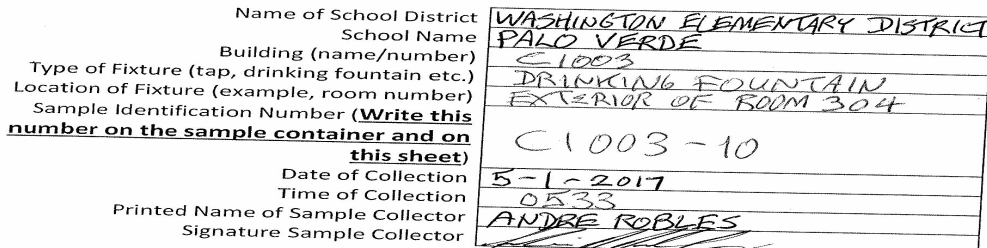 Name of School District WASHINGTON ELEMENTARY DISTRICT
School Name PALO VERDE
Building (name/number) C1003
Type of Fixture (tap, drinking fountain etc.) DRINKING FOUNTAIN
Location of Fixture (example, room number) EXTERIOR OF ROOM 304
Sample Identification Number (Write this
number on the sample container and on
this sheet) C1003-10
Date of Collection 5-1-2017
Time of Collection 0533
Printed Name of Sample Collector ANDRE ROBLES
Signature Sample Collector